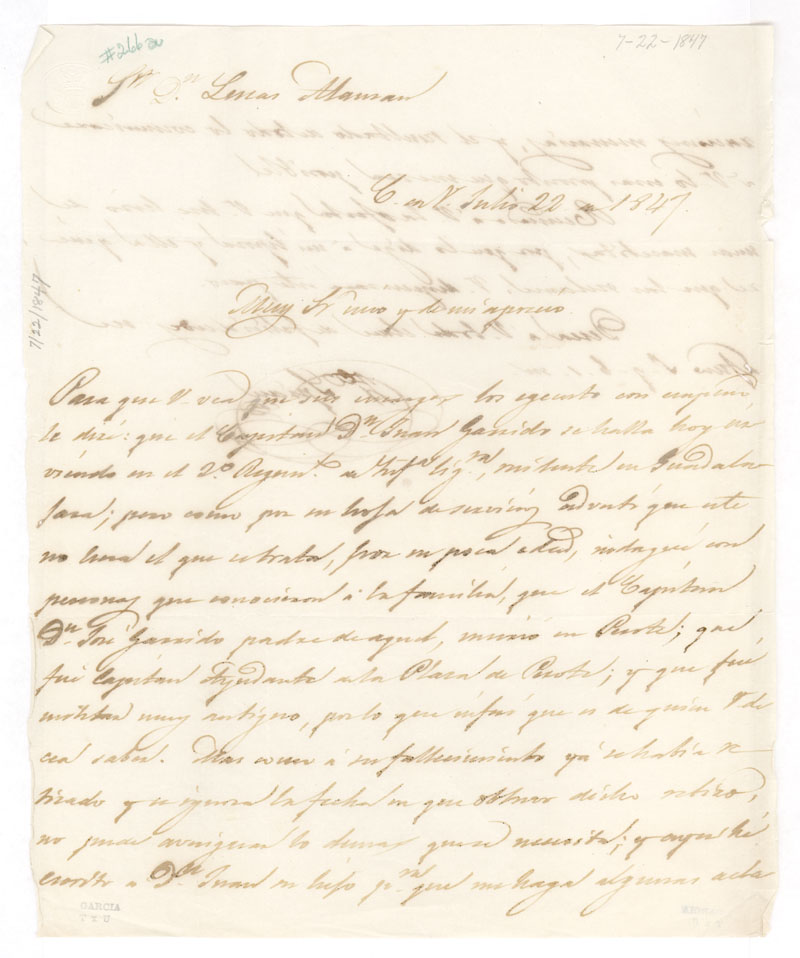 #266 au
7-22-1847
Sr. Dn. Lucas Alaman
C. en V. Julio 22 de 1847.
7/22/1847
Muy Sr. mio y de mi aprecio.
Para que V. vea que sus encargos los egecuto con empeño
le diré: que el Capitan Dn. Juan Garrido se halla hoy sir
viendo en el 2.o Regimto. de Infa. lig.ra, ecsistente en Guadala
jara; pero como por su hoja de servicios advertí que este
no hera el que se trata, por su poca edad, indagué con
personas que conocieron á la familia, que el Capitan
Dn. José Garrido padre de aquel, murió en Perote; que
fué Capitan Ayudante de la Plaza de Perote; y que fué
militar muy antiguo, por lo que inferí que es de quien V. de
cea saber. Mas como á su fallecimiento ya se habia re
tirado y se ignora la fecha en que obtuvo dicho retiro,
no puede averiguar lo demas que se necesita; y ayer hé
escrito a Dn. Juan su hijo p.ra que me haga algunas acla
GARCIA
T X U